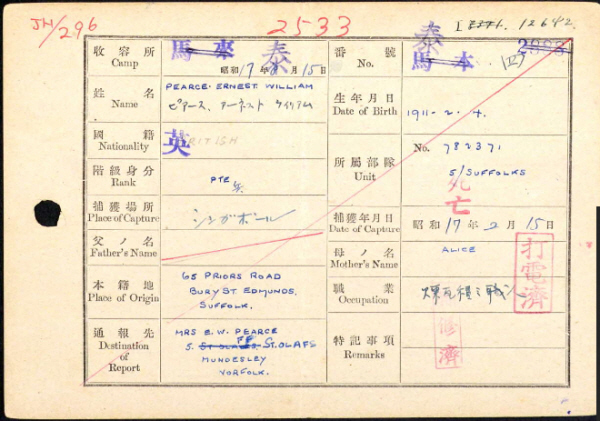 JN/296
2533
収容所 Camp
馬來 泰
昭和 17 年 8 月 15 日
番號 No.
泰
馬來
姓名 Name
PEARCE. ERNEST. WILLIAM
ピアース、アーネスト ウイリアム
生年月日 Date of Birth
1911 - 2 - 4.
國籍 Nationality
英
BRITISH
所屬部隊 Unit
No. 782371
5/SUFFOLKS
階級身分 Rank
PTE
死亡
捕獲場所 Place of Capture
シンガポール
捕獲年月日 Date of Capture
昭和 17 年 2 月 15 日
父ノ名 Father's Name
母ノ名 Mother's Name
ALICE
本籍地 Place of Origin
65 PRIORS ROAD
BURY ST EDMUNDS.
SUFFOLK.
職業 Occupation
打電濟
通報先 Destination of Report
MRS E.W. PEARCE
5. ST OLAFS. ST. OLAFS
MUNDESLEY
NORFOLK.
特記事項 Remarks
濟